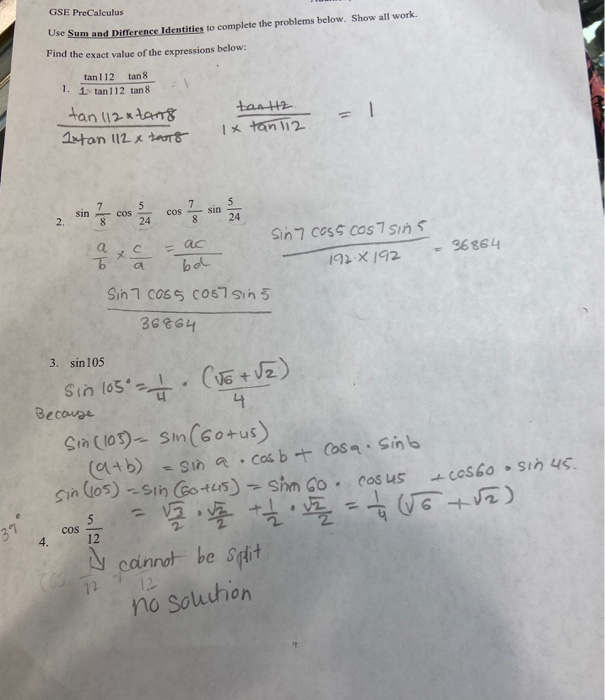 GSE PreCalculus
Use Sum and Difference Identities to complete the problems below. Show all work.
Find the exact value of the expressions below:
1. tan112 tan8 / 1 tan112 tan8 = 1
tan 112 x tan8 / 1xtan 112 x tan8 tan112 / 1 x tan 112 = 1
2. sin 7/8 cos 5/24 cos 7/8 sin 5/24
a/b x c/a = ac/bd sin7 cos5 cos7 sin5 / 192 x 192 = 36864
Sin7 cos5 cos7 sin5 / 36864
3. sin105
Sin 105° = 1/4 · (√6 + √2) / 4
Because
Sin(105) = sin(60+45)
(a+b) = sin a · cos b + cos a · sin b
sin(105) = sin(60+45) = sin 60 · cos 45 + cos60 · sin 45.
= √3/2 · √2/2 + 1/2 · √2/2 = 1/4 (√6 + √2)
39°
4. cos 5/12
cannot be split
12 + 12
no solution